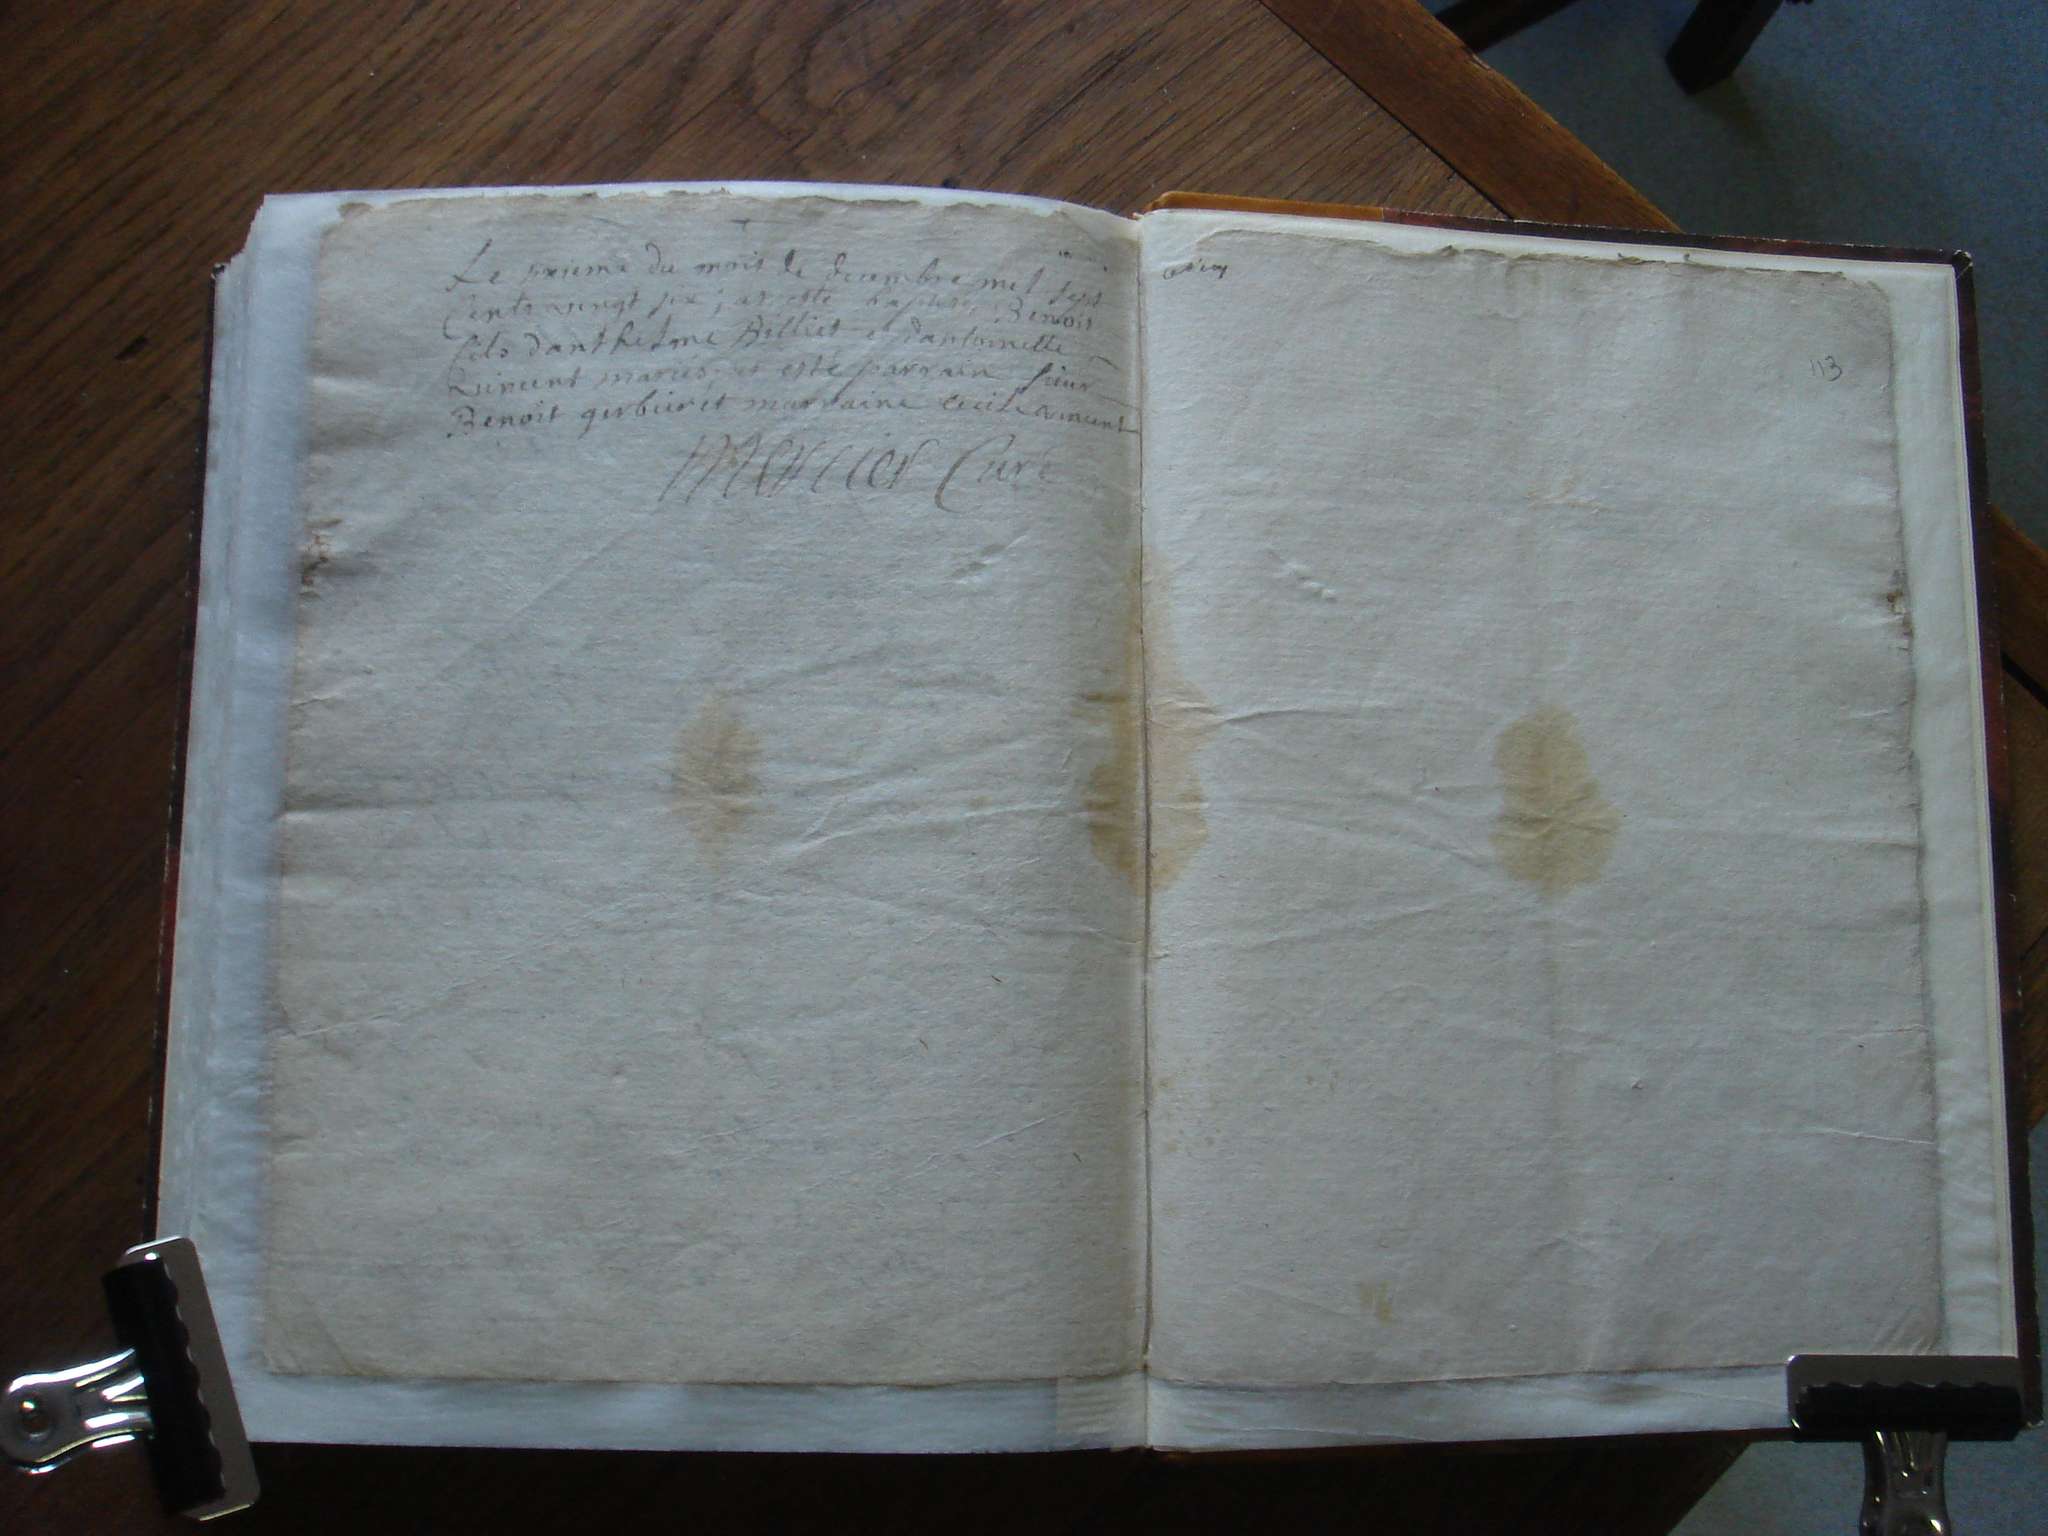 Le sixieme du mois de decembre mil sept
Cents vingt six; at esté baptisé Benoit
fils d'anthelme Billiet et d'antoinette
vincent mariés, et esté parrain sieur
Benoit gerbier et marraine Cecile vincent
Mercier Curé
113